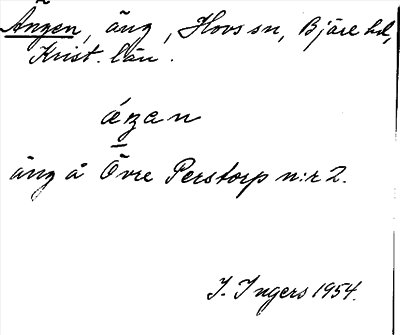 Ängen, äng, Hovs sn, Bjäre hd,
Krist. län.
áŋan
äng å Övre Perstorp n:r 2.
I. Ingers 1954.